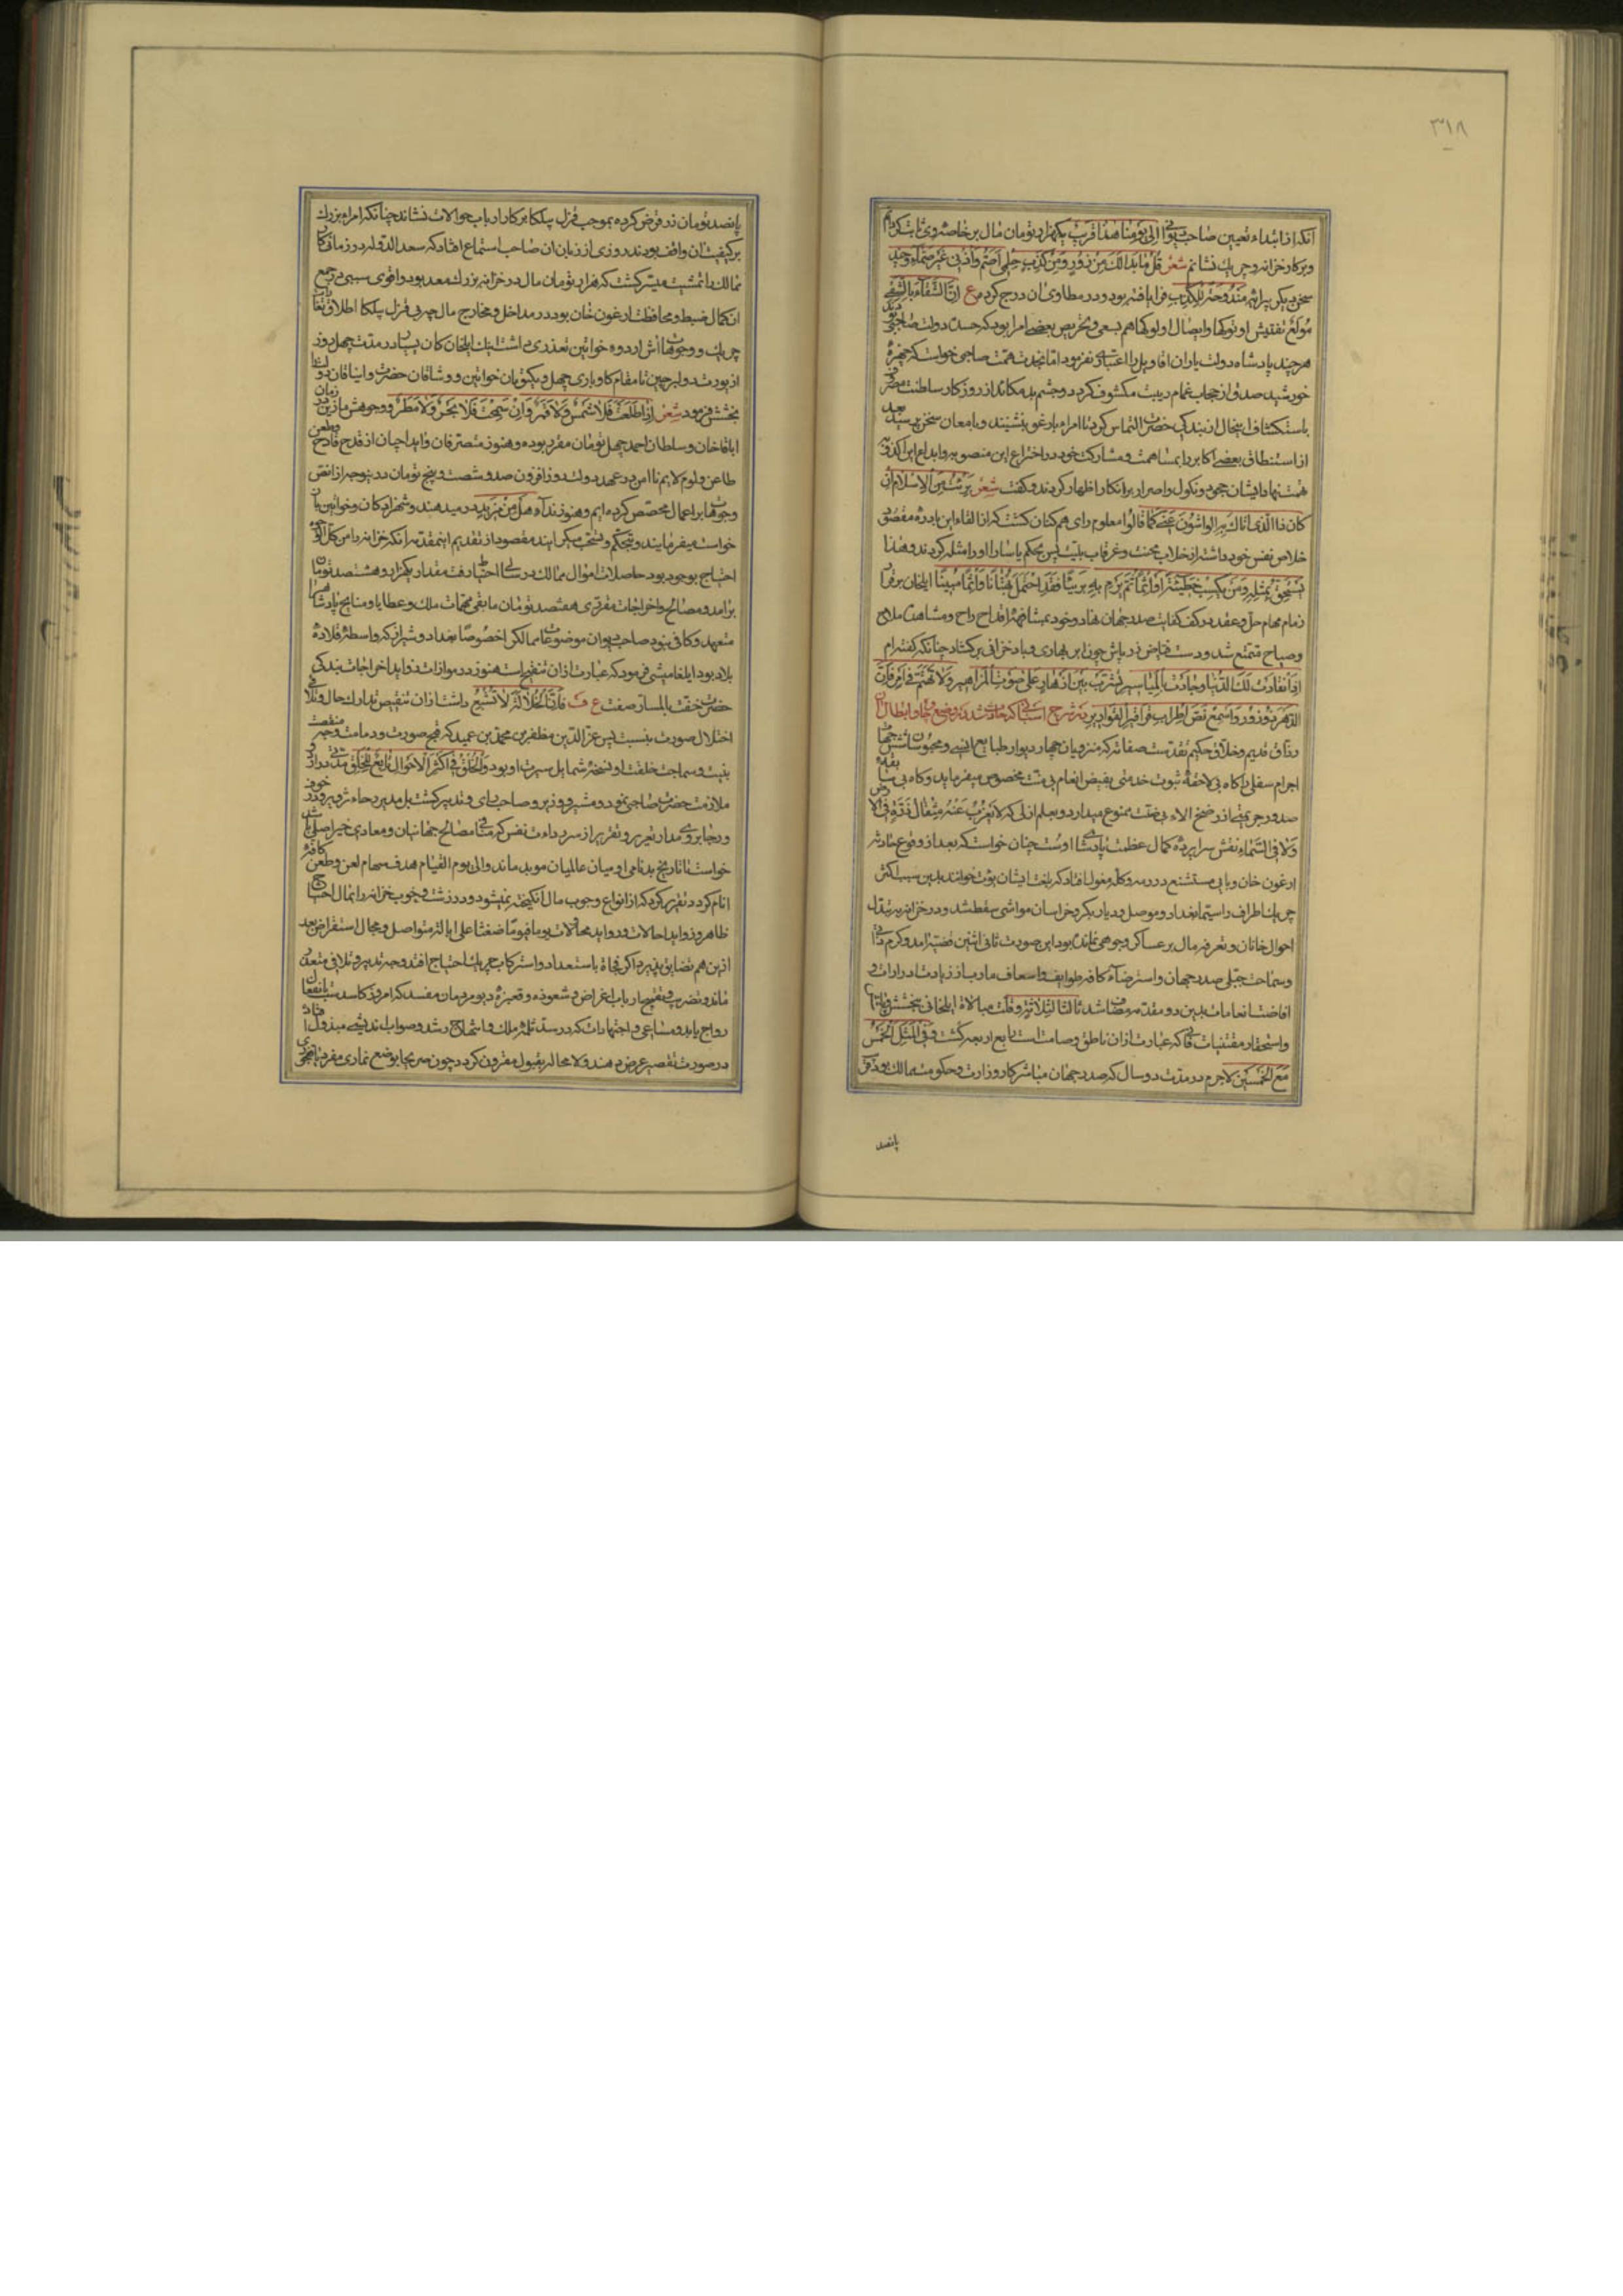 ٣١٨
آنکه از ابتداء تعیین صاحب دیوانی الی یومنا هذا قریب یکهزار تومان مال بر خاصه وی ثابت کردم
و بر کار خزانه و چریک نشانم شعر قل ما بدا لک من زور و من کذب حلمی اصم و اذنی غیر صماء و چند
سخن دیگر پیرایه مندوحة للکذب فرا بافته بود و در مطاوی آن درج کرده ع ان الشقاء بالشقی
مولع تفتیش او توکها و ایصال اولوکها هم بسعی و تحریص بعضی امرا بود که حسد دولت صاحبی
هر چند پادشاه دولت یاران اقاویل را اعتباری نفرمود اما همت صاحبی خواست که چهرهٔ
خورشید صدق از حجاب غمام ریبت مکشوف گردد و چشم بد مکاند از روزگار سلطنت
باستکشاف این حال از بندگی حضرت التماس کرد تا امراء یارغو بنشینند و بامعان سخن پرسید
از استنطاق بعضی اکابر را بمساهمت و مشارکت خود در اختراع این منصوبه و ابداع این اکذوبه
تهمت نهاد ایشان جحود و نکول و اصرار بر انکار اظهار کردند و گفت شعر برئت من الاسلام ان
کان ذا الذی اتاک به الواشون عنی کما قالوا معلوم رای همگنان گشت که از القاء این بادره مقصود
خلاص نفس خود داشته از خلاب محنت و غرقاب بلیت پس بحکم یاسا را او را مثله کردند و هذا
یستحق بمثله و من یکسب خطیئة او اثما ثم یرم به بریئا فقد احتمل بهتانا و اثما مبینا ایلخان برقرار
زمام مهام حل و عقد در کف کفایت صدر جهان نهاد و خود بمشافهه اقداح راح و مشاهده ملاح
و صباح متمتع شد و دست فیاض زرپاش چون ابر بهاری و باد خزانی برگشاد چنانکه گفته‌ام
اذا انقادت لک الدنیا وجادت بالمیاسیر تشرب بین ازهار علی صوت المزامیر ولا تهتم فی امر فان
الدهر ذو زور و اسمع نص اطرابی قواقیر القواریر ذکر شرح اسبابی که حادث شد در وضع چاو و ابطال آن
رزاق قدیم و خلاق حکیم تقدست صفاته که منزویان چهار دیوار طبایع انسی و محبوسان شش جهات
اجرام سفلی را گاه بی لاحقهٔ ثبوت خدمتی بفیض انعام بی منت مخصوص میفرماید و گاه بی سابقه
صدور جریمتی از رضخ آلاء بی ضنت ممنوع میدارد و بعلم ازلی که لا یعزب عنه مثقال ذرة فی الارض
ولا فی السماء نقش سراپردهٔ کمال عظمت پادشاهی اوست چنان خواست که بعد از وقوع حادثه
ارغون خان وبایی مستشنع در رمه و گلهٔ مغول افتاد که بلغت ایشان یوت خوانند بدین سبب اکثر
چریک اطراف را سیما بغداد و موصل و دیار بکر و خراسان مواشی سقط شد و در خزانه بر تبدل
احوال خانان و تفرقه مال بر عساکر وجوهی نمانده بود این صورت ثانی اثنین قضیه آمد و کرم ذاتی
و سماحت جبلی صدر جهان و استرضاء کافه طوایف و اسعاف مآرب از زیادت ادرارات و
افاضت انعامات بدین دو مقدمه مضاف شد ثالثا لثلاثة و قلت مبالاة ایلخانی ببخشش
و استحقار مقتنیات فانی که عبارت از آن ناطق و صامت است رابع اربعه گشت و فی المثل الخمس
مع الخمسین لاجرم در مدت دو سال که صدر جهان مباشر کار وزارت و حکومت ممالک بود
پانصد
پانصد تومان زر قرض کرده بموجب قزل پیلکا بر کار ارباب حوالات نشاند چنانکه امراء بزرگ
بر کیفیت آن واقف بودند روزی از زبان آن صاحب استماع افتاد که سعد الدوله در زمانی کار
ممالک را تمشیت میسر گشت که هزار تومان مال در خزانه بزرگ معد بود و اقوی سببی در جمع
آن کمال ضبط و محافظت ارغون خان بود در مداخل و مخارج مال چه بی قزل پیلکا اطلاق
چریک و وجوهات آش اردوه خواتین تعذری داشت اینک ایلخان کان یسار در مدت چهل روز
از یورت دولبرجین تا مقام کاوباری چهل و یک تومان خواتین و وشاقان حضرت و ایناقان را
بخشش فرمود شعر اذا طلعت فلا شمس ولا قمر وان سمحت فلا بحر ولا مطر و وجوه آش ماذین در زمان
اباقاخان و سلطان احمد چهل تومان مقرر بوده و هنوز متصرفان و ایداچیان از قدح قادح و طعن
طاعن و لوم لایم نا امن در عهد دولت روز افزون صد و شصت و پنج تومان زر بتوجه از انض
وجوهات بر اعمال مخصص کرده‌ایم و هنوز نداء هل من مزید در میدهند و شهزادگان و خواتین باز
خواست میفرمایند و تحکم و تسحب میکنند مقصود از تقدیم این مقدمه آنکه خزانه را من کل الوجوه
احتیاج بوجود بود حاصلات اموال ممالک در سالی احتیاط رفت مقدار یکهزار و هشتصد تومان
برآمد و مصالح و اخراجات مقرری هفتصد تومان مابقی مهمات ملک و عطایا و منایح پادشاهی را
متعهد و کافی نبود صاحب دیوان موضوعات ممالک را خصوصا بغداد و شیراز که واسطهٔ قلادهٔ
بلاد بود ایلغامیشی فرمود که عبارت از آن تنقیح است هنوز در موازات زواید اخراجات بندگی
حضرت خفت بالمسار صفت ع ف فان الخلالة لا تشبع داشت از آن تنقیص تدارک حال و تلافی
اختلال صورت نبست پس عز الدین مظفر بن محمد بن عمید که قبح صورت و دمامت وجه
بنیت و سماجت خلقت او نسخهٔ شمایل سیرت او بود و الخلق فی اکثر الاحوال تابع للخلق مدتی دراز
ملازمت حضرت صاحبی نمود و مشیر و وزیر و صاحب رای و تدبیر گشت بل مدیر رحاء تزویر و در خوف
و رجا بر وی مدار تحریر و تقریر از سر دواعی نفس که منافی مصالح جهانیان و معادی خیر اصلی باشد
خواست تا تاریخ بدنامی او میان عالمیان موبد ماند و الی یوم القیام هدف سهام لعن و طعن کافهٔ
انام گردد تقریر کرد که از انواع وجوب مال انگیخته نمیشود و در زشت و خوب خزانه را بمال احتیاج
ظاهر و زواید احالات و رواید محالات یوما فیوما ضغثا علی ابالة متواصل و مجال استقراض بعد
ازین هم تضایق پذیرد اگر فجاة باستعداد و استرکاب چریک احتیاج افتد وجه تدبیر و تلافی متعذر
ماند و تضریب و تقبیح ارباب اغراض و شعوذه و قعبزهٔ دیو مردمان مفسد که امروز کاسدست
رواج یابد و مساعی و اجتهادات که در سد ثلمهٔ ملک و انتهاج رشد و صواب اندیشی مبذول افتاد
در صورت تقصیر عرض دهند و لا محاله بقبول مقرون گردد چون صریحا بوضع تماری مفرد